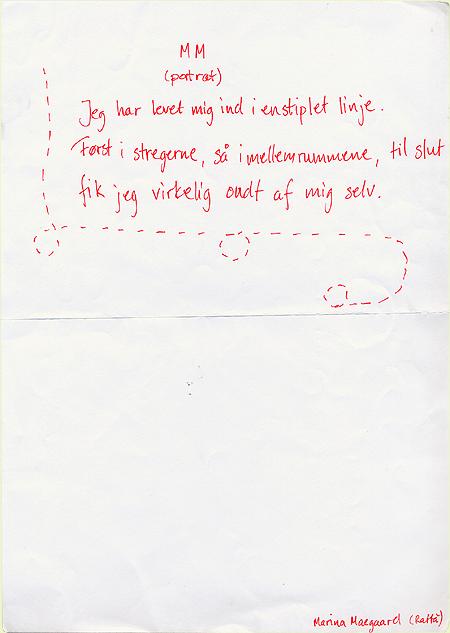 MM
(portræt)
Jeg har levet mig ind i en stiplet linje.
Først i stregerne, så i mellemrummene, til slut
fik jeg virkelig ondt af mig selv.
Marina Maegaard (Raffå)